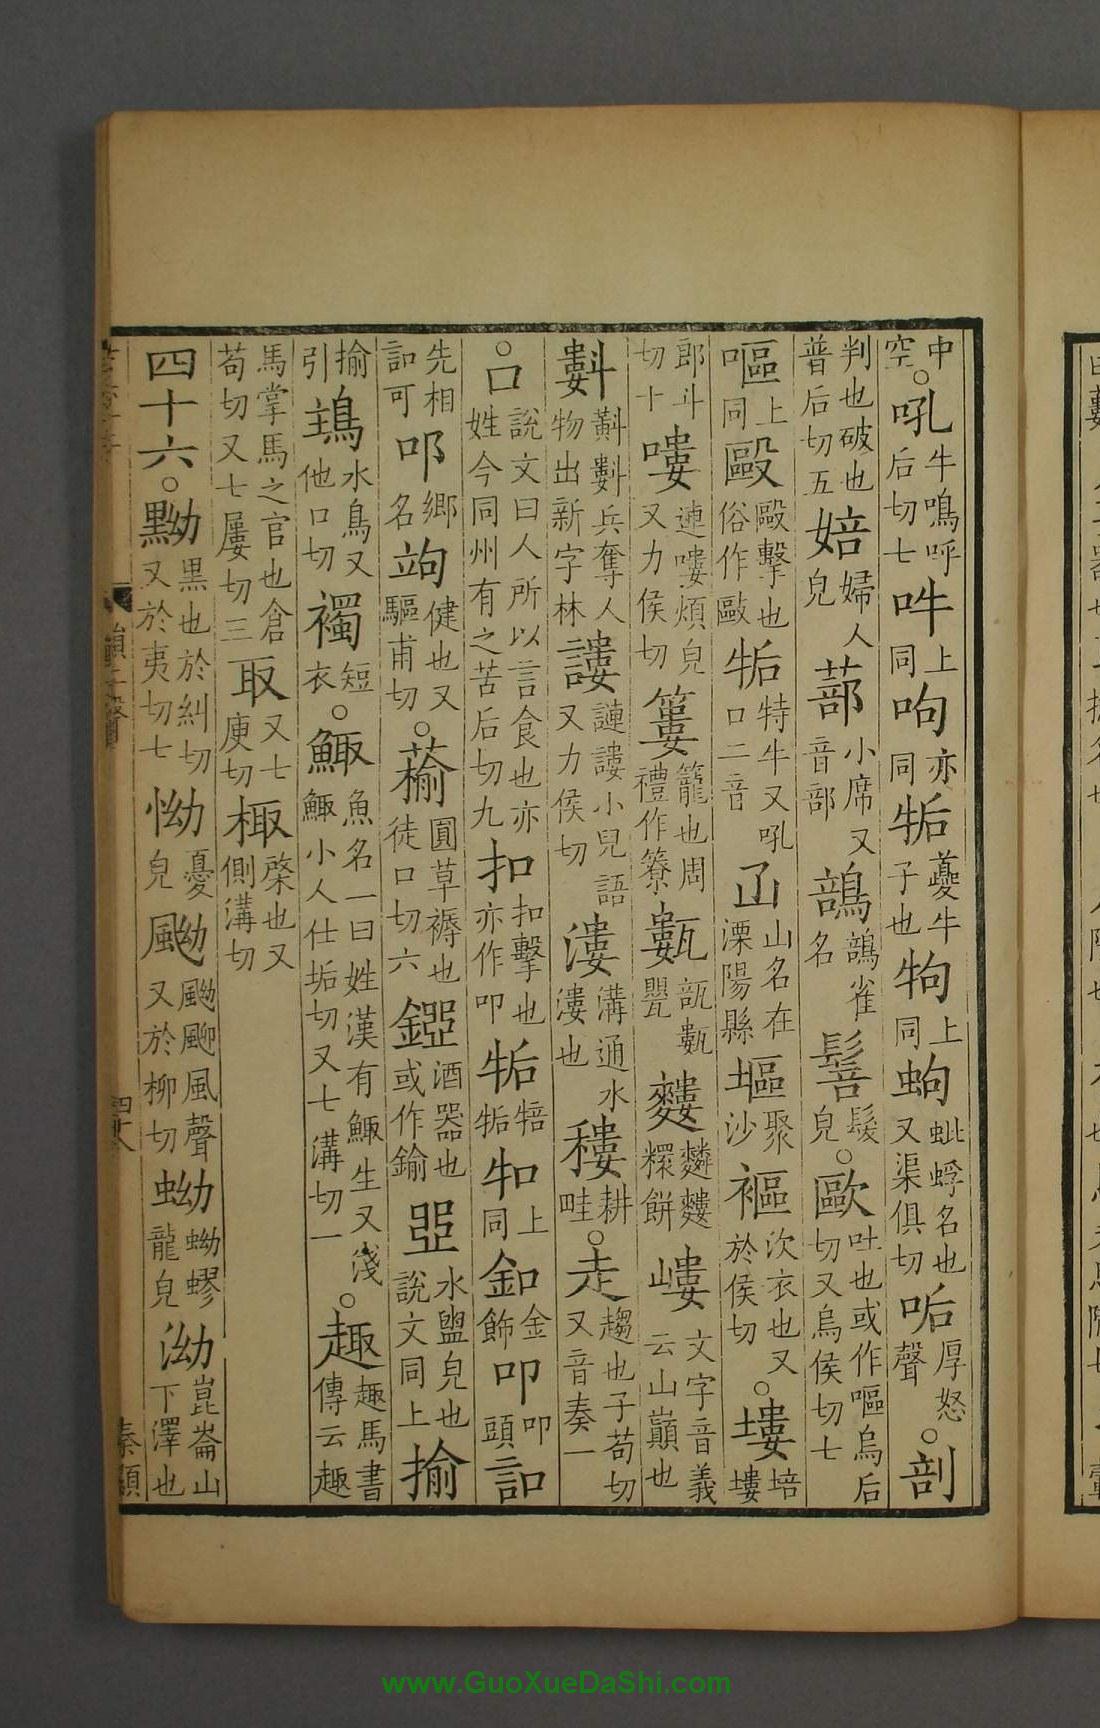 中空○吼牛鳴呼后切七吽上同呴亦同㸸夔牛子也㸬上同蚼蚍蜉名也又渠俱切㖃厚怒聲○剖
判也破也普后切五婄婦人皃蔀小席又音部䴺䴺雀名䯽髮皃○歐吐也或作嘔烏后切又烏侯切七
嘔上同毆毆擊也俗作敺㸸特牛又吼口二音𡴎山名在溧陽縣塸聚沙褔次衣也又於侯切○塿培塿
郎斗切十嘍謰嘍煩皃又力侯切簍籠也周禮作簝甊瓿甊甖𪍣䴴𪍣糫餅嶁文字音義云山巔也
㪹㪺㪹兵奪人物出新字林謱謰謱小兒語又力侯切漊溝通水漊也耬耕畦○走趨也子苟切又音奏一
○口說文曰人所以言食也亦姓今同州有之苦后切九扣扣擊也亦作叩㸸㹃㸸㸫上同釦金飾叩叩頭訆
先相訆可叩鄉名竘健也又驅甫切○蘛圓草褥也徒口切六鋀酒器也或作鍮𨨲水盥皃也說文同上揄
揄引鴸水鳥又他口切襡短衣○鯫魚名一曰姓漢有鯫生又淺鯫小人仕垢切又七溝切一○趣趣馬書傳云趣
馬掌馬之官也倉苟切又七屢切三取又七庾切棷棨也又側溝切
四十六○黝黑也於糾切又於夷切七怮憂皃䬀䬀飀風聲又於柳切蚴蚴蟉龍皃泑崑崙山下澤也
四十八
秦顯
www.GuoXueDaShi.com